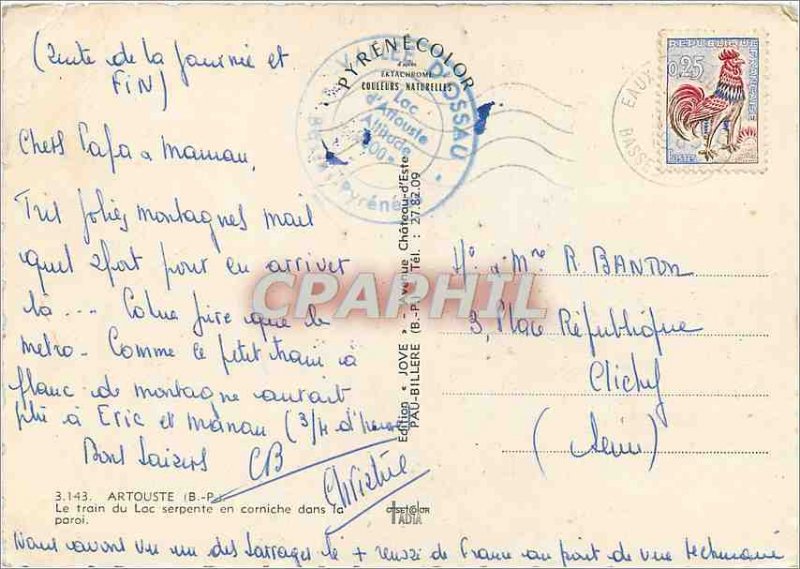 (suite de la journée et
FIN)
Chers Papa & Maman,
Très jolies montagnes mais
quel effort pour en arriver
là ... Cohue pire que le
métro - Comme le petit train à
flanc de montagne aurait
plu à Eric et Manau (3/4 d'heure)
Bons baisers CB
Christine
3.143. ARTOUSTE (B.-P.)
Le train du Lac serpente en corniche dans la
paroi.
Nous avons vu un des barrages le + réussi de France au point de vue technique
PYRÉNÉCOLOR
d'après
EKTACHROME
COULEURS NATURELLES
VALLÉE D'OSSAU
Lac
d'Artouste
Altitude
Pyrénées
Edition « JOVE » - Avenue Château-d'Este
PAU-BILLÈRE (B.-P.) Tél. : 27.82.09
offsetcolor
iADIA
REPUBLIQUE FRANÇAISE
0,25
POSTES
EAUX
BASSES
Mr & Mme R. BANTON
3, Place République
Clichy
(Seine)
CPARPHIL